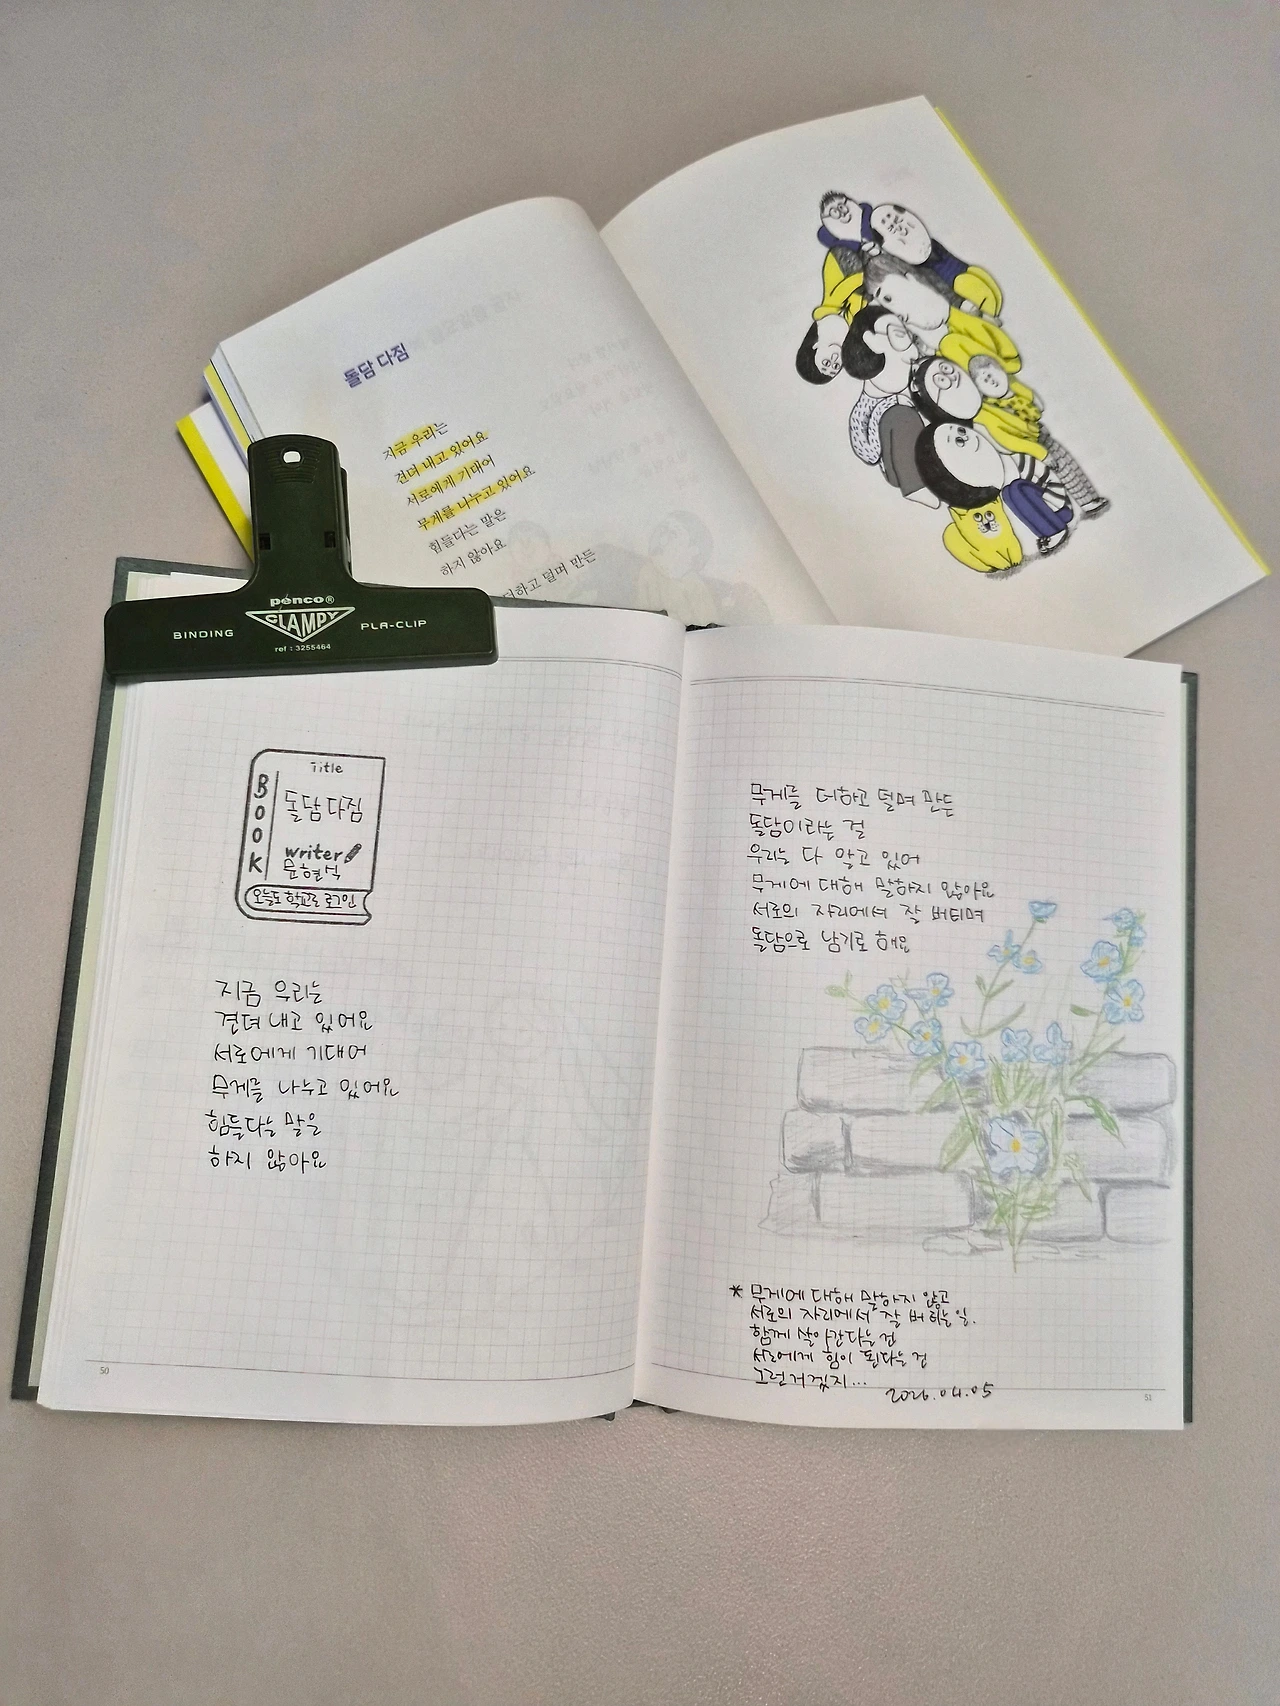 돌담 다짐
지금 우리는
견뎌 내고 있어요
서로에게 기대어
무게를 나누고 있어요
힘들다는 말은
하지 않아요
더하고 덜며 만든
penco®
CLAMPY
BINDING PLA-CLIP
ref : 3255464
Title
BOOK
돌담 다짐
writer
문현식
오늘도 학교로 로그인
지금 우리는
견뎌 내고 있어요
서로에게 기대어
무게를 나누고 있어요
힘들다는 말은
하지 않아요
50
무게를 더하고 덜며 만든
돌담이라는 걸
우리는 다 알고 있어
무게에 대해 말하지 않아요
서로의 자리에서 잘 버티며
돌담으로 남기로 해요
* 무게에 대해 말하지 않고
서로의 자리에서 잘 버티는 일.
함께 살아간다는 건
서로에게 힘이 된다는 건
그런거겠지...
2026.04.05
51